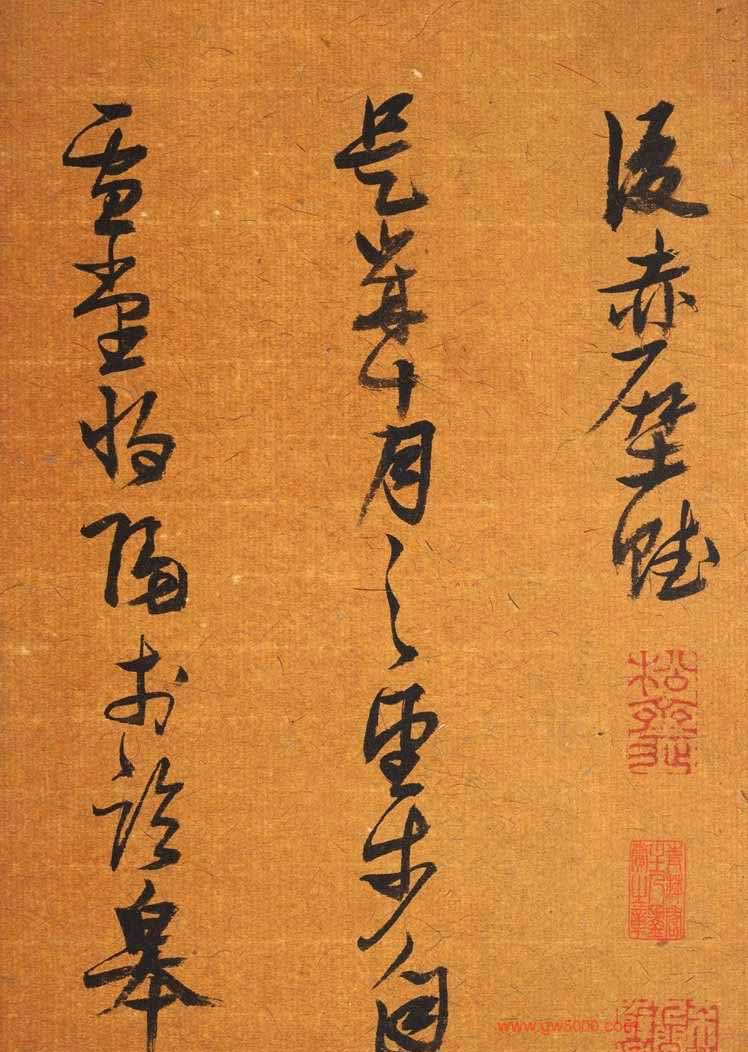 後赤壁賦
是歲十月之望步自
雪堂將歸於臨皋
www.gw5000.com